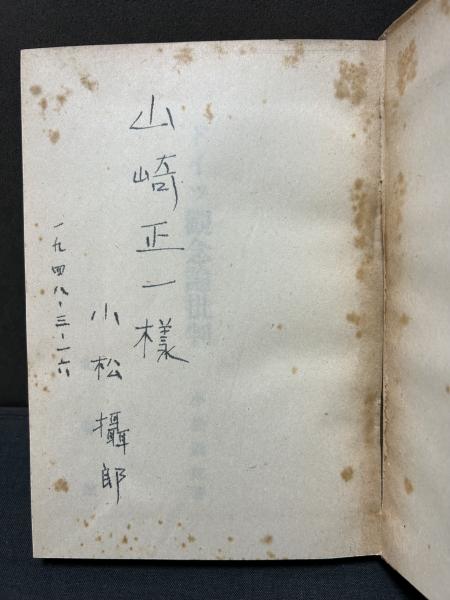 山崎正一様
小松攝郎
一九四八・三・一六